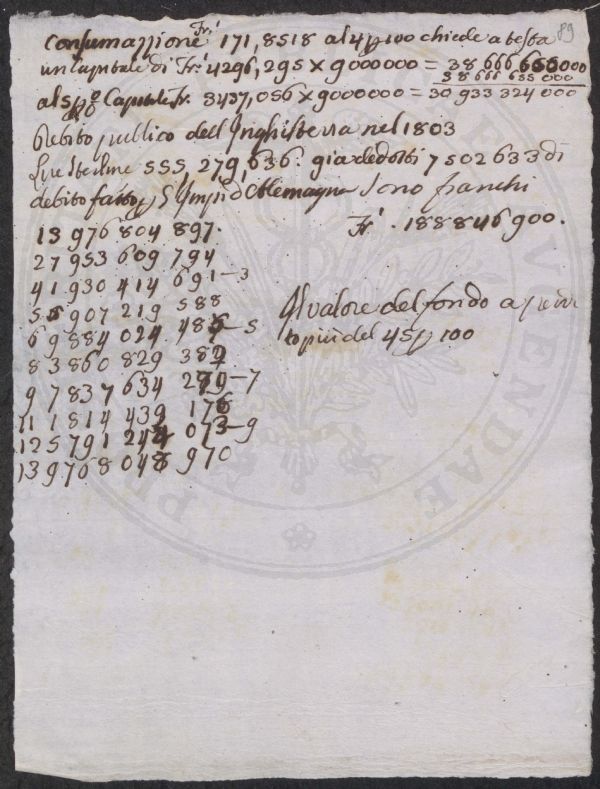 89
Consumazzione Fr.i 171,8518 al 4 p 100 chiede a testa
un Capitale di Fr.i 4296,295 x 9000000 = 38 666 655 000
38 666 655 000
al 5 p o/o Capitale Fr. 3437,056 x 9000000 = 30 933 324 000
Debito publico dell Inghilterra nel 1803
Lire Sterline 555,279,636. gia dedotti 7502633 di
debito fatto p l'Imp.e d'Allemagna sono franchi
Fr.i . 188846900.
13 976 804 897.
27 953 609 794
41 930 414 691-3
55 907 219 588
69 884 024 485-5
83 860 829 382
9 7837 634 279-7
111814 439 176
125791 244 073-9
139768 048 970
Il valore del fondo a
to piu del 45 p 100